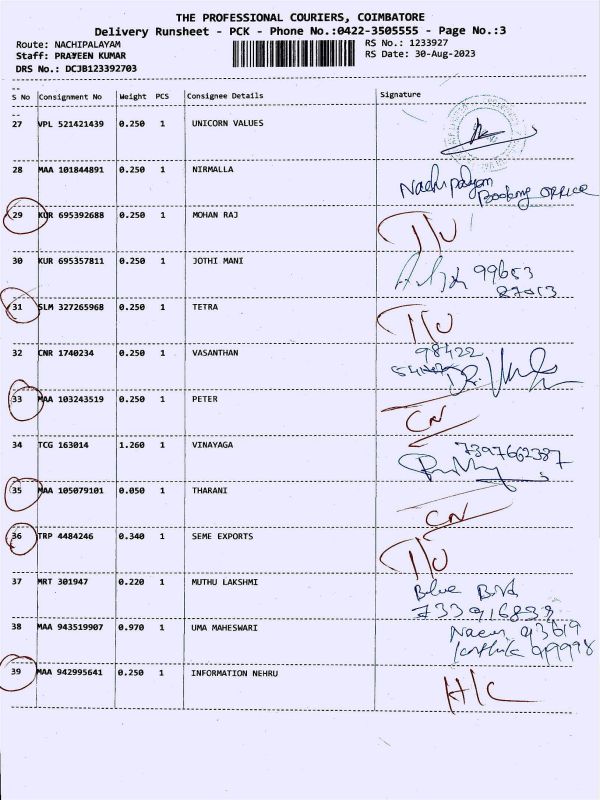 THE PROFESSIONAL COURIERS, COIMBATORE
Delivery Runsheet - PCK - Phone No.:0422-3505555 - Page No.:3
Route: NACHIPALAYAM RS No.: 1233927
Staff: PRAVEEN KUMAR RS Date: 30-Aug-2023
DRS No.: DCJB123392703
S No Consignment No Weight PCS Consignee Details Signature
27 VPL 521421439 0.250 1 UNICORN VALUES
28 MAA 101844891 0.250 1 NIRMALLA Nachipalayam
Booking OFFICE
29 KUR 695392688 0.250 1 MOHAN RAJ
30 KUR 695357811 0.250 1 JOTHI MANI 99653
87013
31 SLM 327265968 0.250 1 TETRA
32 CNR 1740234 0.250 1 VASANTHAN 98422
33 MAA 103243519 0.250 1 PETER CN
34 TCG 163014 1.260 1 VINAYAGA 7397662387
35 MAA 105079101 0.050 1 THARANI CN
36 TRP 4484246 0.340 1 SEME EXPORTS
37 MRT 301947 0.220 1 MUTHU LAKSHMI Blue
38 MAA 943519907 0.970 1 UMA MAHESWARI
39 MAA 942995641 0.250 1 INFORMATION NEHRU H/C